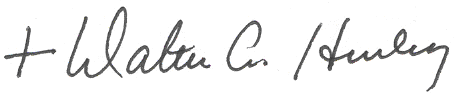 + Walter A. Hurley